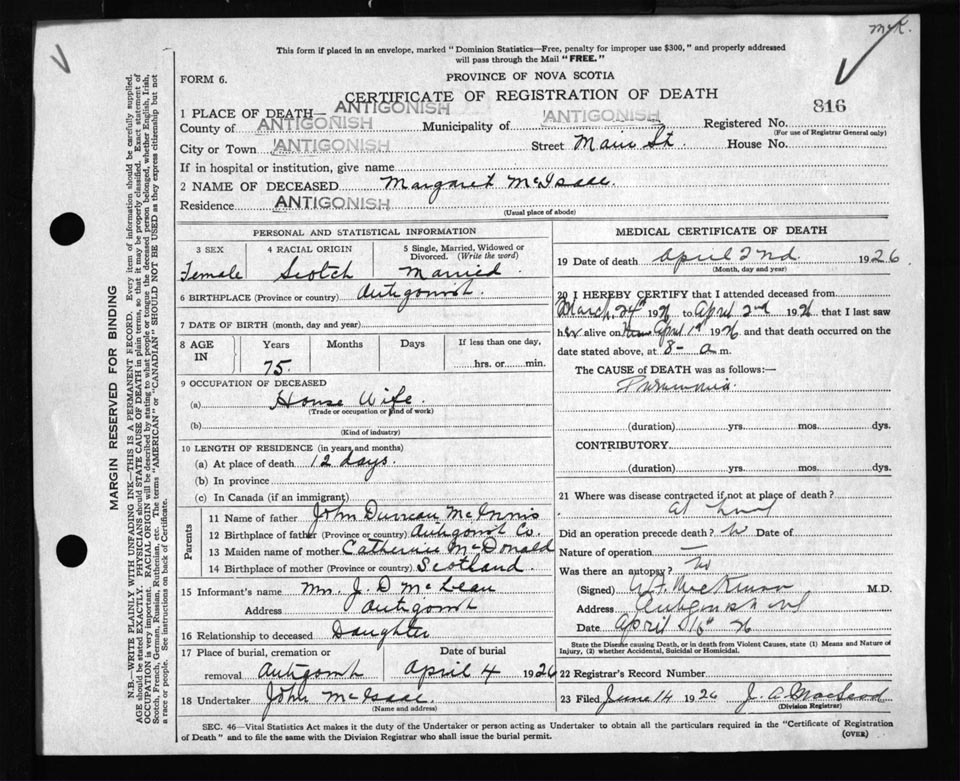 McK.
This form if placed in an envelope, marked "Dominion Statistics—Free, penalty for improper use $300," and properly addressed
will pass through the Mail "FREE."
FORM 6.
PROVINCE OF NOVA SCOTIA
CERTIFICATE OF REGISTRATION OF DEATH
816
1 PLACE OF DEATH— ANTIGONISH
County of ANTIGONISH Municipality of ANTIGONISH Registered No.
(For use of Registrar General only)
City or Town ANTIGONISH Street Main St. House No.
If in hospital or institution, give name
2 NAME OF DECEASED Margaret McIsaac.
Residence ANTIGONISH
(Usual place of abode)
PERSONAL AND STATISTICAL INFORMATION
3 SEX 4 RACIAL ORIGIN 5 Single, Married, Widowed or Divorced. (Write the word)
Female Scotch Married.
6 BIRTHPLACE (Province or country) Antigonish.
7 DATE OF BIRTH (month, day and year)
8 AGE IN Years Months Days If less than one day,
75. hrs. or min.
9 OCCUPATION OF DECEASED
(a) House Wife.
(Trade or occupation or kind of work)
(b)
(Kind of industry)
10 LENGTH OF RESIDENCE (in years and months)
(a) At place of death 12 days.
(b) In province
(c) In Canada (if an immigrant)
Parents
11 Name of father John Duncan McInnis
12 Birthplace of father (Province or country) Antigonish Co.
13 Maiden name of mother Catherine McDonald
14 Birthplace of mother (Province or country) Scotland.
15 Informant's name Mrs. J. D McLean
Address Antigonish
16 Relationship to deceased Daughter
17 Place of burial, cremation or removal Date of burial
Antigonish April 4 1926
18 Undertaker John McIsaac
(Name and address)
MEDICAL CERTIFICATE OF DEATH
19 Date of death April 2nd. 1926
(Month, day and year)
20 I HEREBY CERTIFY that I attended deceased from
March 24th 1926 to April 2nd 1926 that I last saw
her alive on April 1st 1926 and that death occurred on
date stated above, at 8- a m.
The CAUSE of DEATH was as follows:—
Pneumonia.
(duration) yrs. mos. dys.
CONTRIBUTORY.
(duration) yrs. mos. dys.
21 Where was disease contracted if not at place of death?
At
Did an operation precede death? No Date of
Nature of operation —
Was there an autopsy? No
(Signed) McKinnon M.D.
Address Antigonish
Date April 26
State the Disease causing Death, or in death from Violent Causes, state (1) Means and Nature of
Injury, (2) whether Accidental, Suicidal or Homicidal.
22 Registrar's Record Number
23 Filed June 14 1926 J. A. MacLeod
(Division Registrar)
SEC. 46—Vital Statistics Act makes it the duty of the Undertaker or person acting as Undertaker to obtain all the particulars required in the "Certificate of Registration
of Death" and to file the same with the Division Registrar who shall issue the burial permit.
(OVER)
MARGIN RESERVED FOR BINDING
N.B.—WRITE PLAINLY WITH UNFADING INK—THIS IS A PERMANENT RECORD. Every item of information should be carefully supplied.
AGE should be stated EXACTLY. PHYSICIANS should STATE CAUSE OF DEATH in plain terms, so that it may be properly classified. Exact statement of
OCCUPATION is very important. RACIAL ORIGIN will be described by stating to what people or tongue the deceased person belonged, whether English, Irish,
Scotch, French, German, Russian, Ruthenian, etc. The terms "AMERICAN" or "CANADIAN" SHOULD NOT BE USED as they express citizenship but not
a race or people. See instructions on back of Certificate.